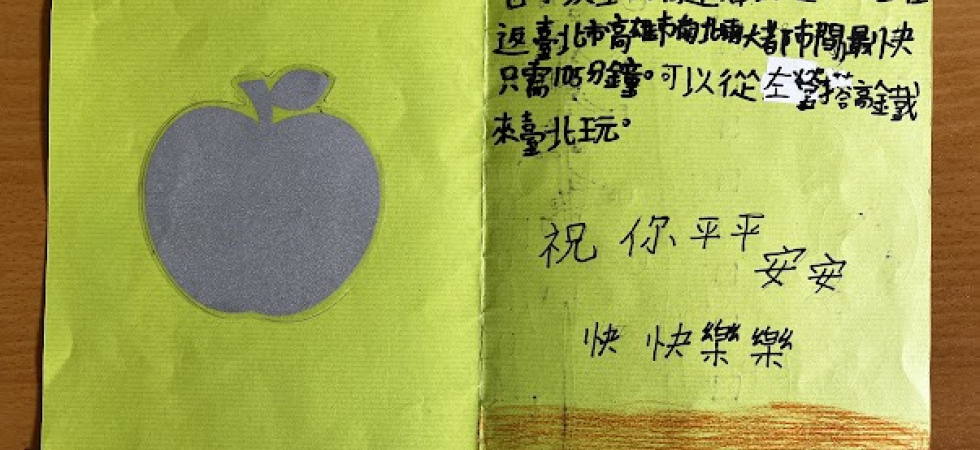 返臺北市高雄市南北兩大都市間最快
只需105分鐘。可以從左營搭高鐵
來臺北玩。
祝你平平
安安
快快樂樂